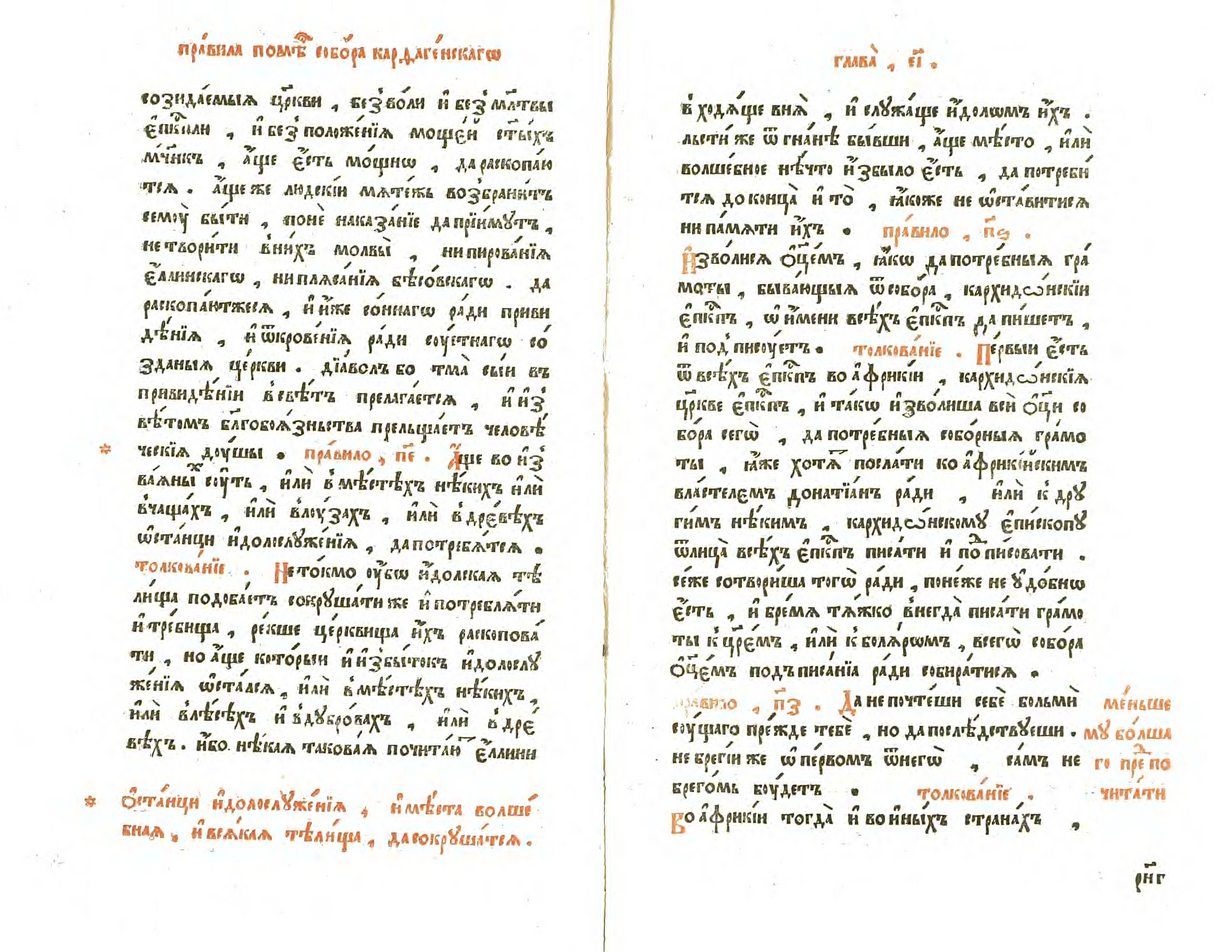 пра́вила помѣ́ⷭ собо́ра карѳаге́нскагѡ
созида́емыѧ цр҃кви , без̾во́ли и҆ без̾ мл҃твы
є҆пⷭ҇кпли , и҆ без̾ положе́нїѧ моще́й ст҃ы́хъ
мч҃нкъ , а҆́ще є҆́сть мо́щнѡ , да раскопаю́
тсѧ . а҆́ще же людскі́и мѧте́жь возбрани́тъ
семоу̀ бы́ти , понѐ наказа́нїе да прїи́мутъ ,
не твори́ти в̾ни́хъ молвы̀ , ни пирова́нїѧ
є҆́ллинскагѡ , ни плѧса́нїѧ бѣсо́вскагѡ . да
раскопаю́тжесѧ , и҆ и҆̀же со́ннагѡ ра́ди приви
дѣ́нїѧ , и҆ ѿкрове́нїѧ ра́ди соу́етнагѡ со́
зданыѧ це́ркви . дїа́волъ бо тма̀ сы́и въ
привидѣ́нїи в̾свѣ́тъ прелага́етсѧ , и҆ и҆з̾
вѣ́томъ бл҃гобоѧ́зньства прельща́етъ человѣ́
ческїѧ доу́шы . пра́вило , п҃е . А҆́ще во и҆з̾
ваѧ́ныⷯ соу́ть , и҆лѝ в̾мѣ́стѣхъ нѣ́кихъ и҆лѝ
в̾ча́щахъ , и҆лѝ в̾лоу́захъ , и҆лѝ в̾дре́вѣхъ
ѡ҆ста́нцы и҆долослꙋже́нїѧ , да потребѧ́тсѧ .
толкова́нїе . Не то́кмо оу҆́бѡ и҆́дольскаѧ тѣ
ли́ща подоба́етъ сокрꙋша́ти же и҆ потреблѧ́ти
и҆ тре́бища , ре́кше це́рквища и҆́хъ раскопова́
ти , но а҆́ще кото́рыи и҆ и҆з̾бы́токъ и҆долослꙋ
же́нїѧ ѡ҆ста́лсѧ , и҆лѝ в̾мѣ́стѣхъ нѣ́кихъ ,
и҆лѝ в̾лѣ́сѣхъ и҆ в̾дꙋбро́вахъ , и҆лѝ в̾дре́
вѣхъ . и҆́бо нѣ́каѧ такова́ѧ почита́юⷮ є҆́ллини
* ѻ҆ста́нцы и҆долослꙋже́нїѧ , и҆ мѣ́ста волше́
бнаѧ , и҆ всѧ́каѧ тѣ́лища , да сокрꙋша́тсѧ .
глава̀ , є҃і .
в̾ходѧ́ще внѧ̀ , и҆ слꙋжа́ще и҆́доломъ и҆́хъ .
льсти́ же ѿгна́нѣ бы́вши , а҆́ще мѣ́сто , и҆лѝ
волше́бное нѣ́что и҆збы́ло є҆́сть , да потреби́
тсѧ до конца̀ и҆ то̀ , ꙗ҆́коже не ѡ҆ста́витисѧ
ни па́мѧти и҆́хъ . пра́вило , п҃ѕ .
И҆зво́лисѧ ѻ҆ц҃е́мъ , ꙗ҆́кѡ да потре́бныѧ гра́
моты , быва́ющыѧ ѿ собо́ра , кархидѡ́нскїи
є҆пⷭ҇кпъ , ѿ и҆́мени всѣ́хъ є҆пⷭ҇кпъ да пи́шетъ ,
и҆ под̾писоу́етъ . толкова́нїе . Пе́рвыи є҆́сть
ѿ всѣ́хъ є҆пⷭ҇кпъ во а҆́фрикїи , кархидѡ́нскїѧ
цр҃кве є҆пⷭ҇кпъ , и҆ та́кѡ и҆зво́лиша всѝ ѻ҆ц҃ы̀ со
бо́ра сегѡ̀ , да потре́бныѧ собо́рныѧ гра́мо
ты , ꙗ҆́же хотѧ́ⷮ посла́ти ко а҆фрикі́йскимъ
власте́лемъ донатїа́нъ ра́ди , и҆лѝ к̾ дрꙋ
ги́мъ нѣ́кимъ , кархидѡ́нскомꙋ є҆пи́скопꙋ
ѿ лица̀ всѣ́хъ є҆пⷭ҇кпъ писа́ти и҆ поⷣписовати .
се́же сотвори́ша тогѡ̀ ра́ди , поне́же не ꙋ҆до́бнѡ
є҆́сть , и҆ бре́мѧ тѧ́жко внегда̀ писа́ти гра́мо
ты к̾ цр҃е́мъ , и҆лѝ к̾ болѧ́рѡмъ , всегѡ̀ собо́ра
ѻ҆ц҃е́мъ подъписа́нїа ра́ди собира́тисѧ .
пра́вило , п҃з . Да не почте́ши себѐ бо́льми
соу́щаго пре́жде тебѐ , но да послѣ́дствꙋеши .
не брегі́и же ѡ҆ пе́рвомъ ѡ҆ негѡ̀ , са́мъ не
брего́мь боу́детъ . толкова́нїе .
Во а҆́фрикїи тогда̀ и҆ во и҆ны́хъ страна́хъ ,
ме́ньше
мꙋ бо́лша
го преⷣпо
чита́ти
рн҃г